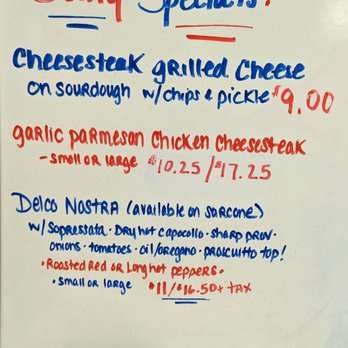 Specials!
Cheesesteak grilled Cheese
on sourdough w/chips & pickle $9.00
garlic Parmesan Chicken Cheesesteak
- small or large $10.25/$17.25
Delco Nostra (available on sarcone)
w/ Sopressata · Dry hot capocollo · sharp prov ·
onions · tomatoes · oil/oregano · proscuitto top!
· Roasted Red or Long hot peppers ·
· small or large $11/$16.50 + tax